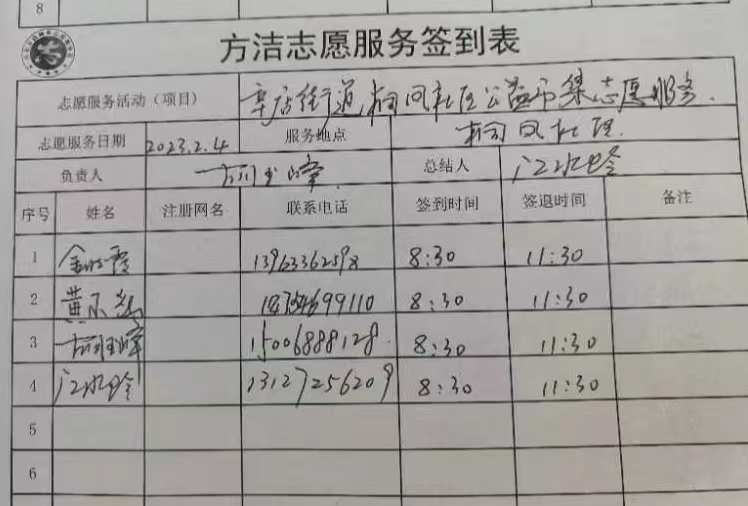 8
方洁志愿服务签到表
志愿服务活动（项目） 街道桐凤社区公益市集志愿服务.
志愿服务日期 2023.2.4 服务地点 桐凤社区.
负责人 总结人 江水玲
序号 姓名 注册网名 联系电话 签到时间 签退时间 备注
1 8:30 11:30
2 黄 8:30 11:30
3 15006888128 8:30 11:30
4 江水玲 13127256209 8:30 11:30
5
6